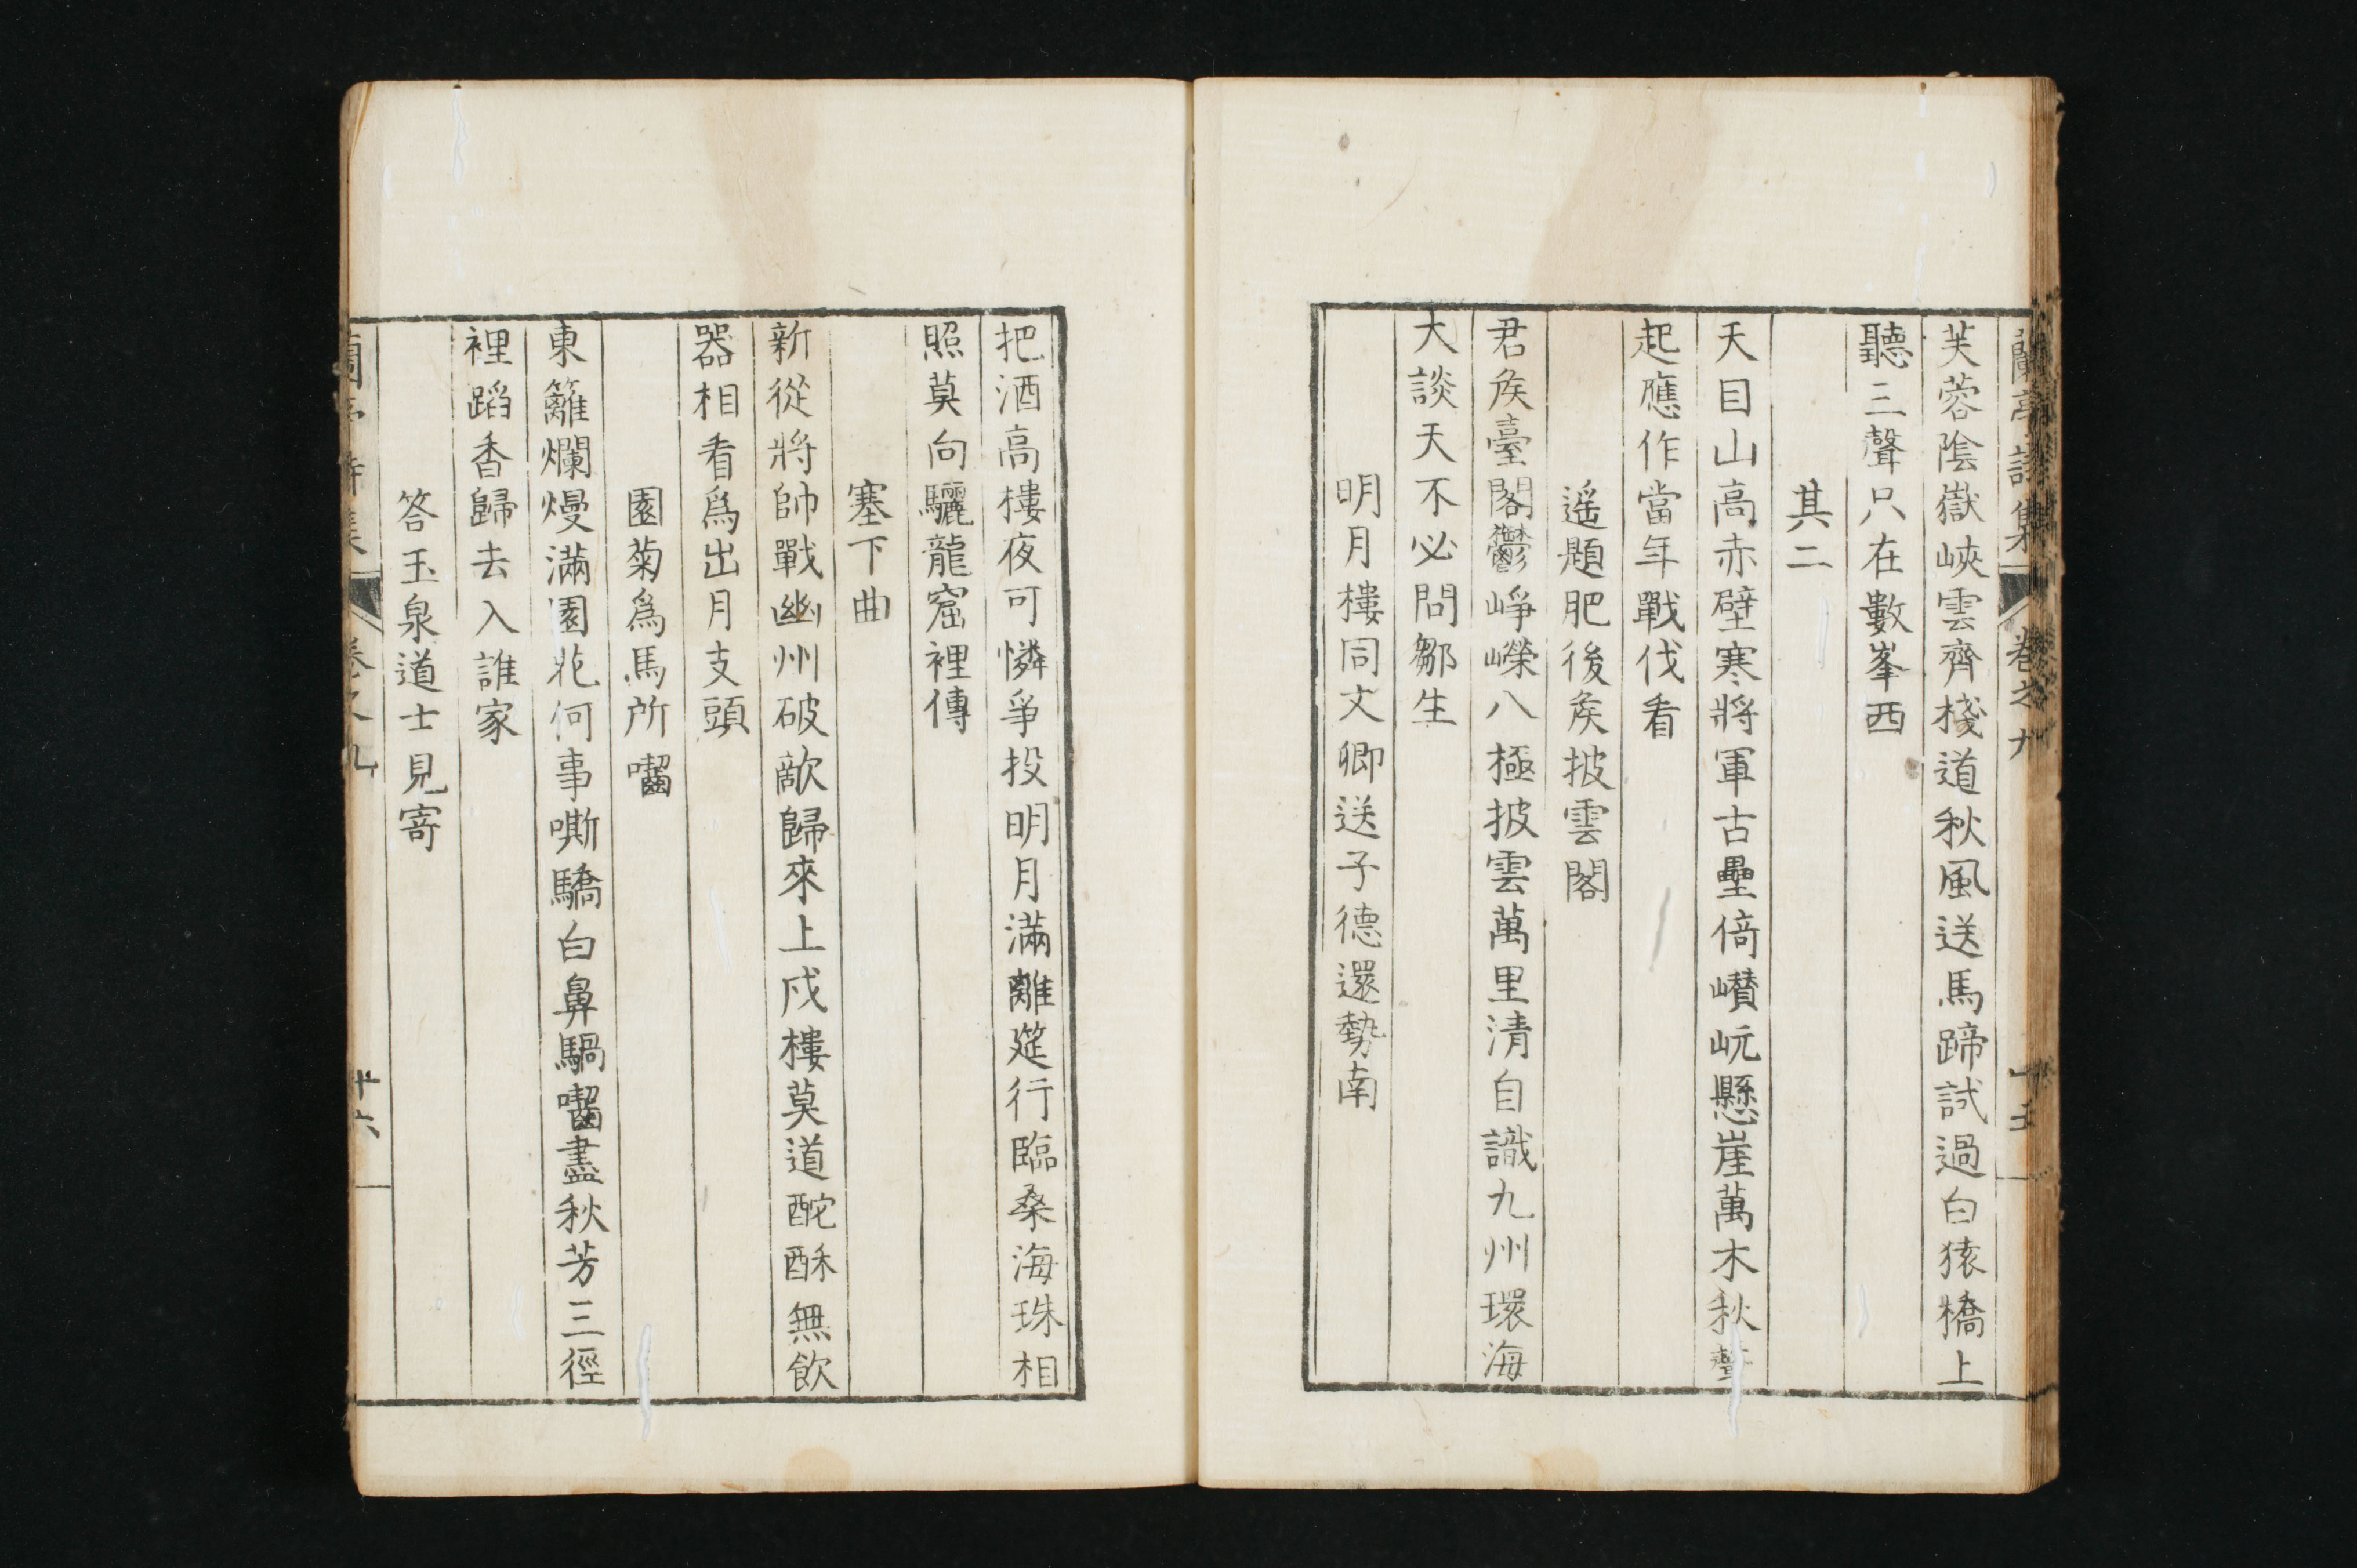 蘭亭詩集 卷之九 十五
芙蓉陰嶽峽雲齊棧道秋風送馬蹄試過白猿橋上
聽三聲只在數峯西
其二
天目山高赤壁寒將軍古壘倚巑岏懸崖萬木秋聲
起應作當年戰伐看
遥題肥後矦披雲閣
君矦臺閣鬱崢嶸八極披雲萬里清自識九州環海
大談天不必問鄒生
明月樓同文卿送子德還勢南
把酒高樓夜可憐爭投明月滿離筵行臨桑海珠相
照莫向驪龍窟裡傳
塞下曲
新從將帥戰幽州破敵歸來上戍樓莫道酡酥無飲
器相看爲出月支頭
園菊爲馬所囓
東籬爛熳滿園花何事嘶驕白鼻騧囓盡秋芳三徑
裡蹈香歸去入誰家
答玉泉道士見寄
蘭亭詩集 卷之九 十六